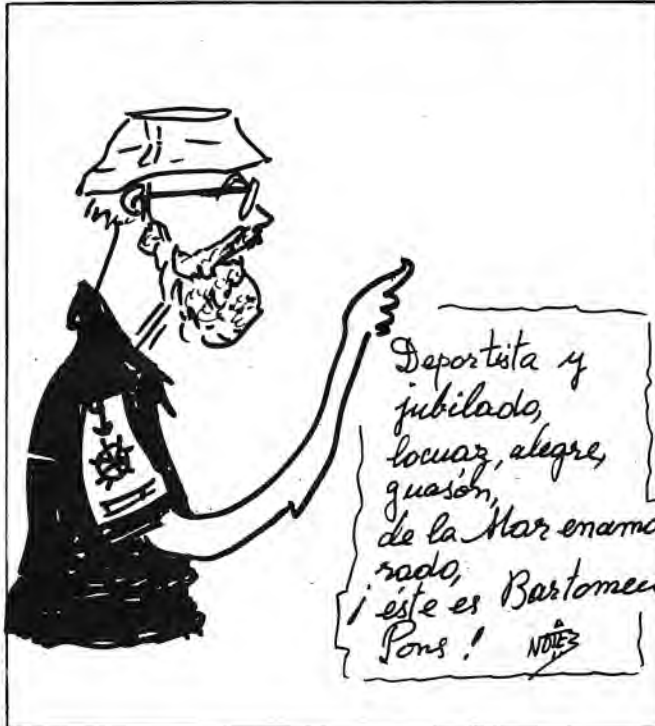 Deportista y
jubilado,
locuaz, alegre,
guasón,
de la Mar enamo
rado,
¡éste es Bartomeu
Pons!